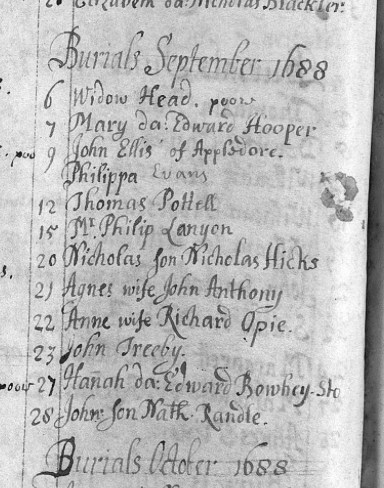 20 Elizabeth da: Nicholas Blackler.
Burials September 1688
6 Widow Head. poore
7 Mary da: Edward Hooper
9 John Ellis of Appledore.
Philippa Evans
12 Thomas Pottell
15 Mr. Philip Lanyon
20 Nicholas son Nicholas Hicks
21 Agnes wife John Anthony
22 Anne wife Richard Opie.
23 John Treeby.
poore 27 Hanah da: Edward Bowhey. Sto
28 John son Nath. Randle.
Burials October 1688